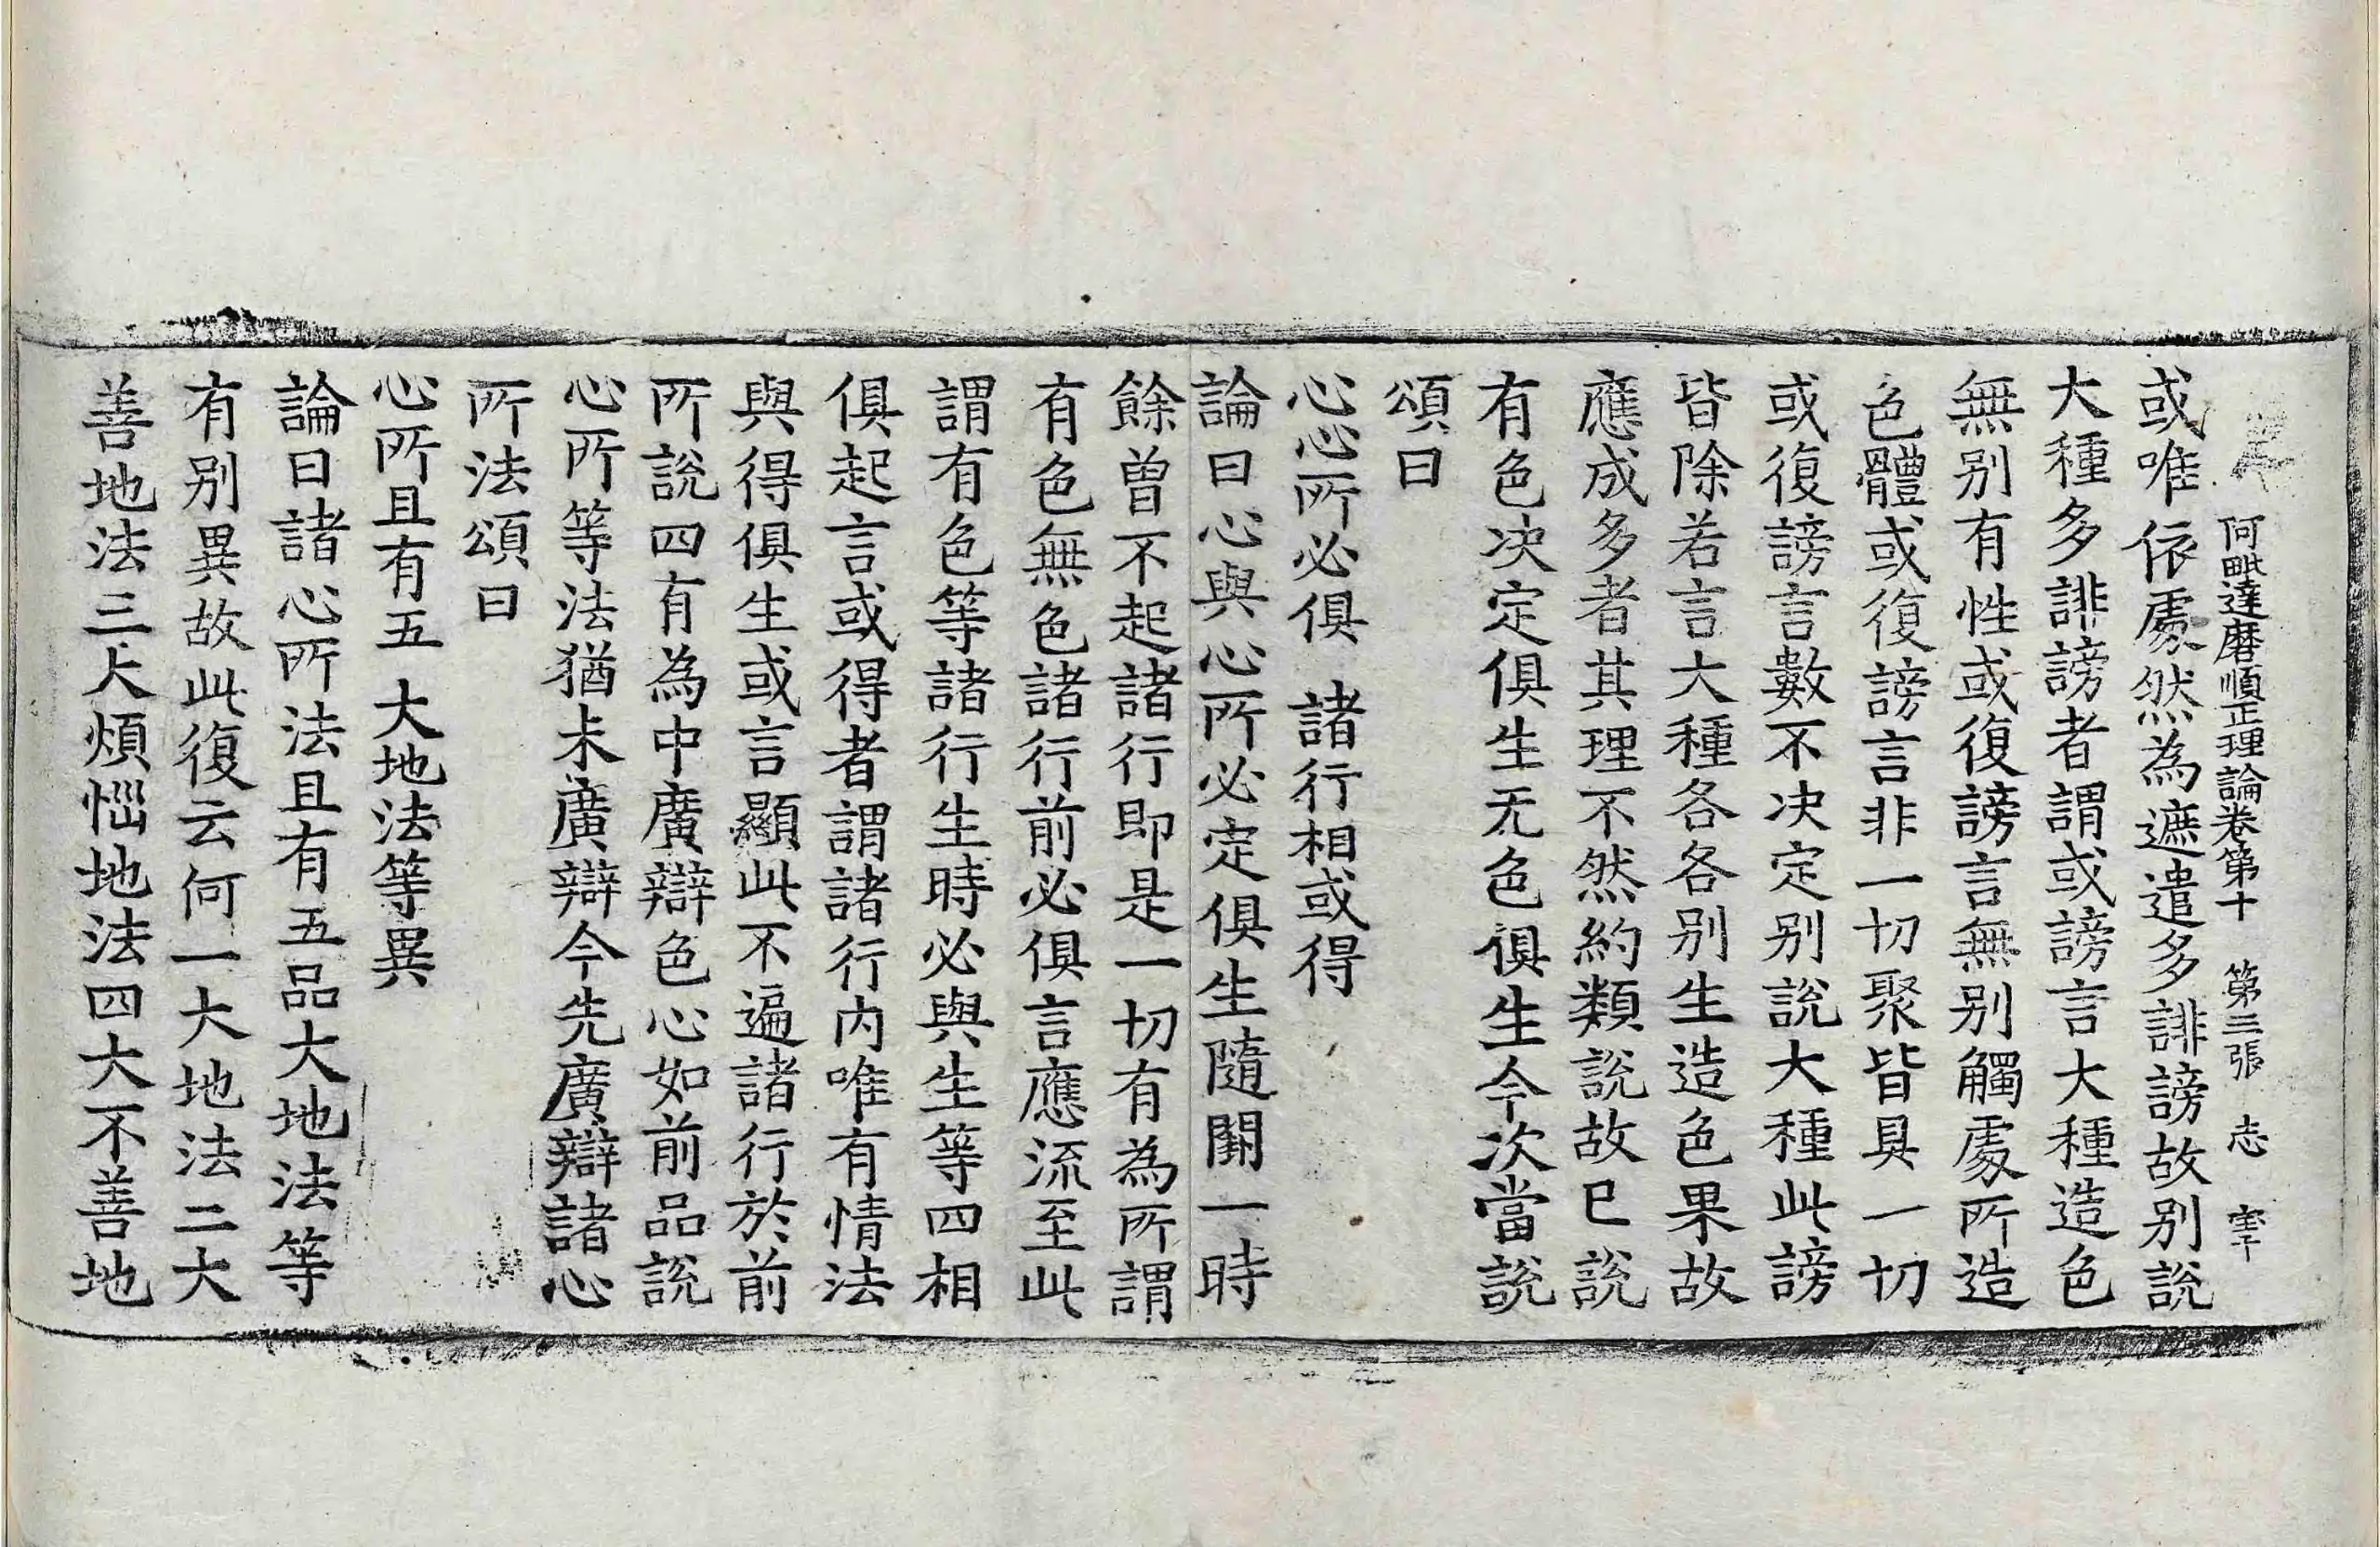 何毗達磨順正理論卷第十 第三張 志
或唯依處然為遮遣多誹謗故別說
大種多誹謗者謂或謗言大種造色
無別有性或復謗言無別觸處所造
色體或復謗言非一切聚皆具一切
或復謗言數不决定別說大種此謗
皆除若言大種各各別生造色果故
應成多者其理不然約類說故已說
有色决定俱生无色俱生今次當說
頌曰
心心所必俱 諸行相或得
論曰心與心所必定俱生隨闕一時
餘曾不起諸行即是一切有為所謂
有色無色諸行前必俱言應流至此
謂有色等諸行生時必與生等四相
俱起言或得者謂諸行內唯有情法
與得俱生或言顯此不遍諸行於前
所說四有為中廣辯色心如前品說
心所等法猶未廣辯今先廣辯諸心
所法頌曰
心所且有五 大地法等異
論曰諸心所法且有五品大地法等
有別異故此復云何一大地法二大
善地法三大煩惱地法四大不善地